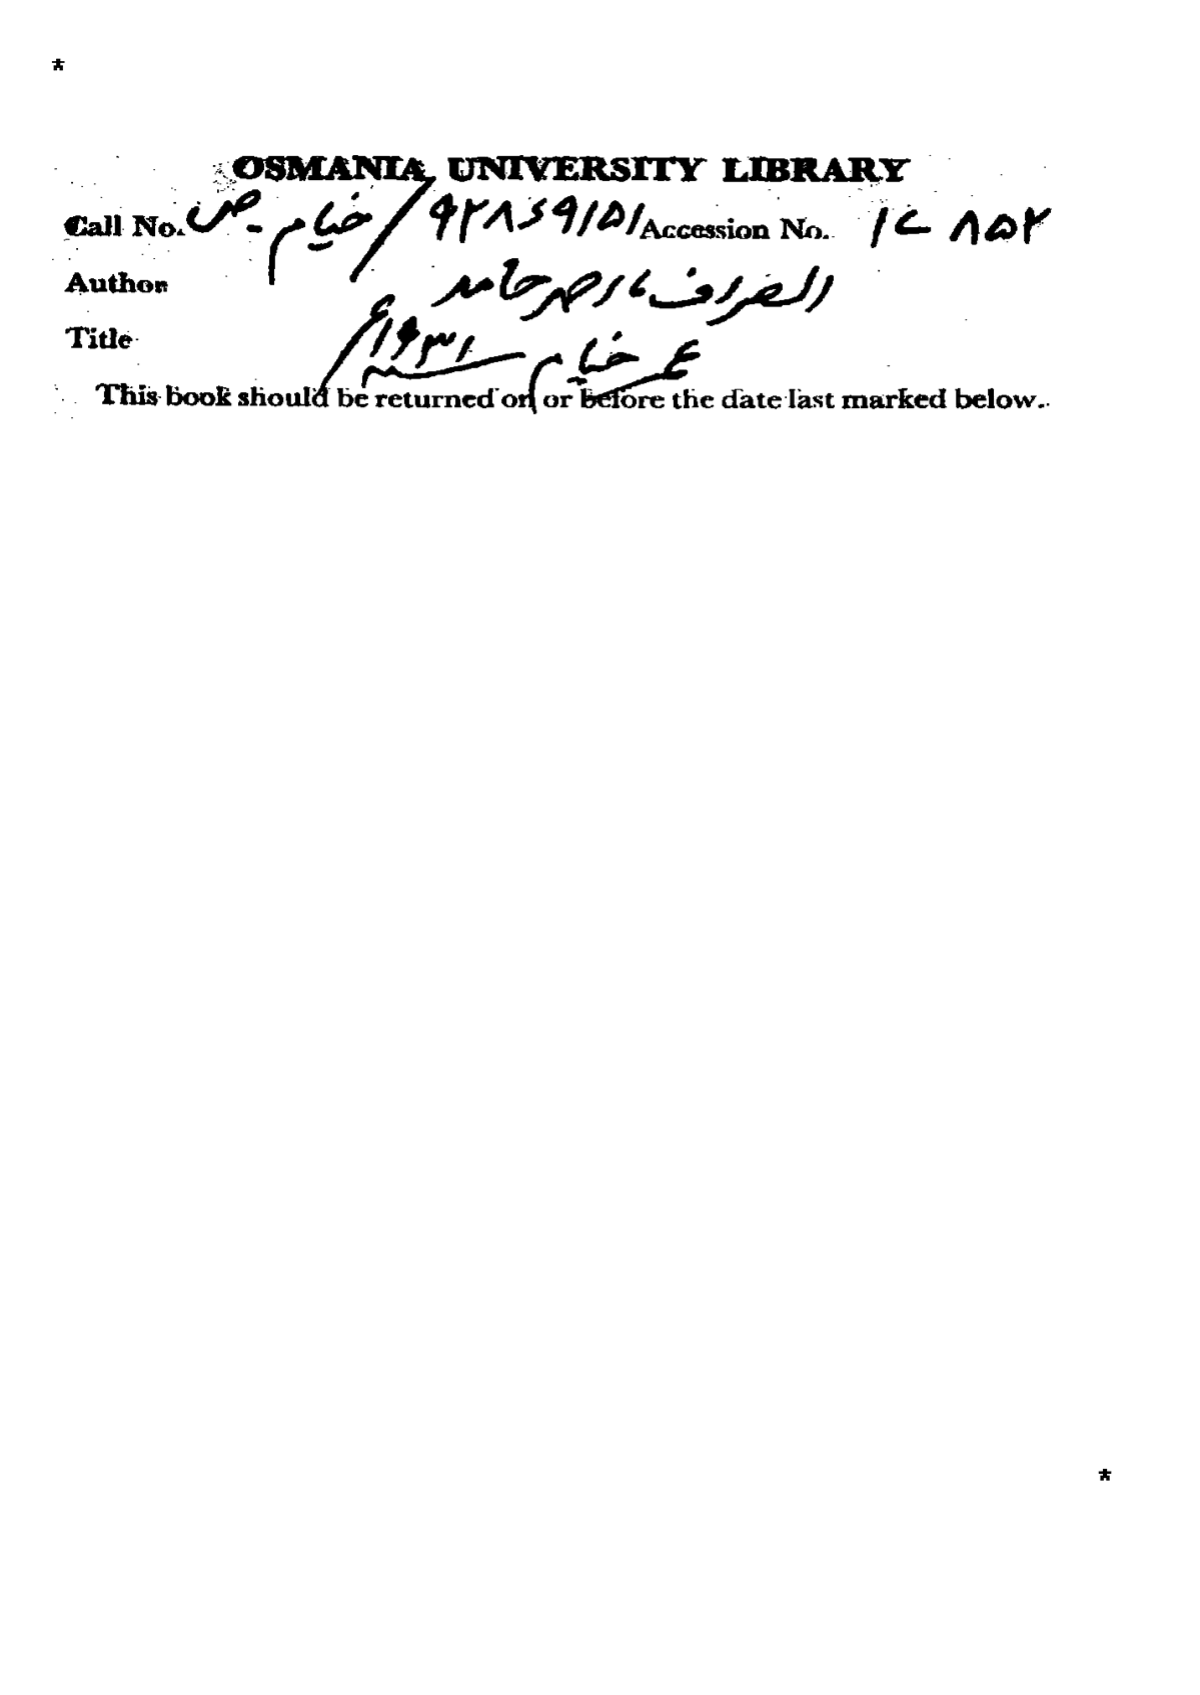 *
OSMANIA UNIVERSITY LIBRARY
Call No. ۹۲۸ء۹۱۵۱/خیام - ص Accession No. ۱۷۸۵۲
Author الصراف، احمد حامد
Title عمر خیام ۱۹۳۱ء
This book should be returned on or before the date last marked below.
*